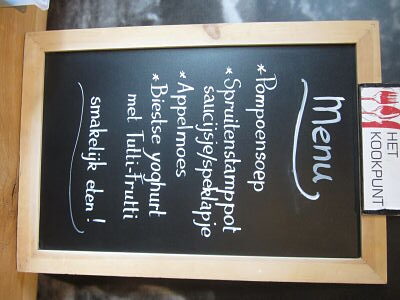 HET
KOOKPUNT
Menu
* Pompoensoep
* Spruitenstamppot
saucijsje/speklapje
* Appelmoes
* Biestse yoghurt
met Tutti-Frutti
smakelijk eten!